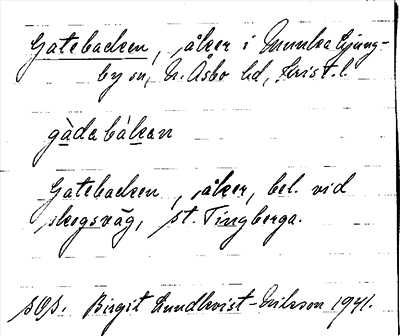 Gatebacken, åker i Munka Ljung-
by sn, N. Åsbo hd, Krist. l.
gàdabákan
Gatebacken, åker, bel. vid
skogsväg, st. Tingberga.
SOS. Birgit Lundkvist-Nilsson 1941.